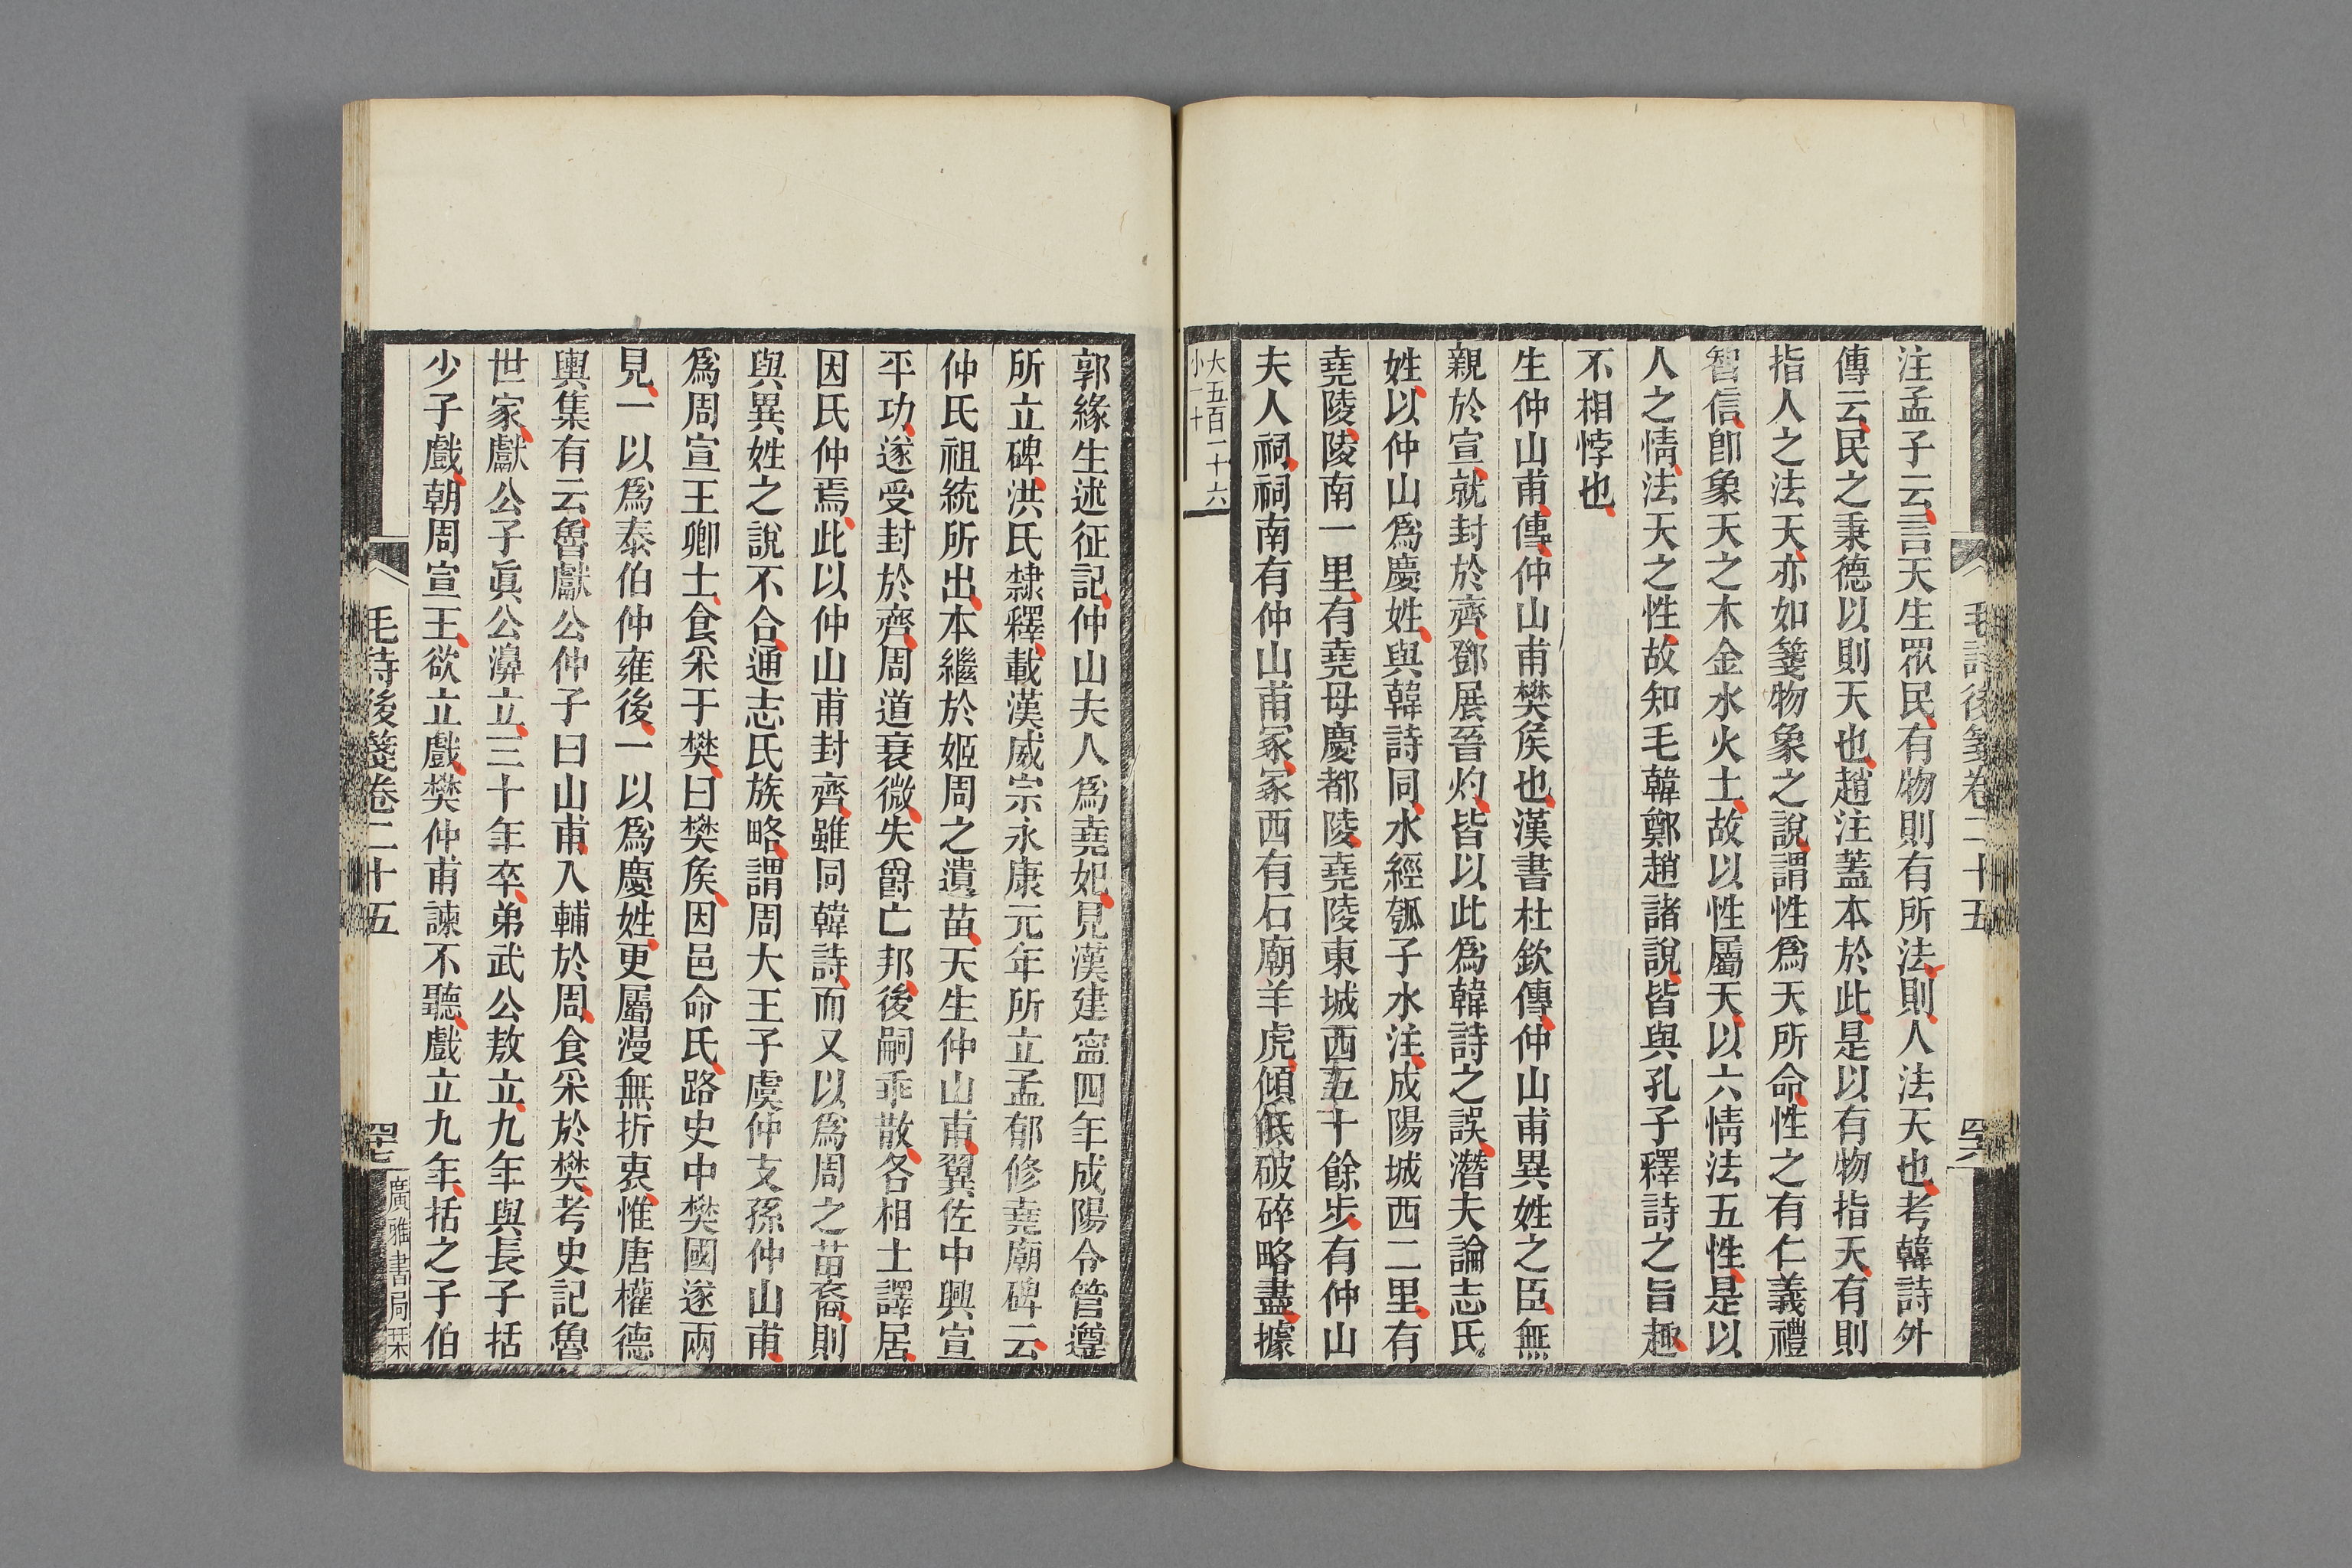 毛詩後箋卷二十五
注孟子云言天生眾民有物則有所法則人法天也考韓詩外
傳云民之秉德以則天也趙注蓋本於此是以有物指天有則
指人之法天亦如箋物象之說謂性爲天所命性之有仁義禮
智信卽象天之木金水火土故以性屬天以六情法五性是以
人之情法天之性故知毛韓鄭趙諸說皆與孔子釋詩之旨趣
不相悖也
生仲山甫傳仲山甫樊矦也漢書杜欽傳仲山甫異姓之臣無
親於宣就封於齊鄧展晉灼皆以此爲韓詩之誤潛夫論志氏
姓以仲山爲慶姓與韓詩同水經瓠子水注成陽城西二里有
堯陵陵南一里有堯母慶都陵堯陵東城西五十餘步有仲山
夫人祠祠南有仲山甫冢冢西有石廟羊虎傾低破碎略盡據
大五百二十六
小一十
郭緣生述征記仲山夫人爲堯妃見漢建寍四年成陽令管遵
所立碑洪氏隸釋載漢威宗永康元年所立孟郁修堯廟碑云
仲氏祖統所出本繼於姬周之遺苗天生仲山甫翼佐中興宣
平功遂受封於齊周道衰微失爵亡邦後嗣乖散各相土譯居
因氏仲焉此以仲山甫封齊雖同韓詩而又以爲周之苗裔則
與異姓之說不合通志氏族略謂周大王子虞仲支孫仲山甫
爲周宣王卿士食采于樊曰樊矦因邑命氏路史中樊國遂兩
見一以爲泰伯仲雍後一以爲慶姓更屬漫無折衷惟唐權德
輿集有云魯獻公仲子曰山甫入輔於周食采於樊考史記魯
世家獻公子眞公濞立三十年卒弟武公敖立九年與長子括
少子戲朝周宣王欲立戲樊仲甫諫不聽戲立九年括之子伯
毛詩後箋卷二十五
廣雅書局栞